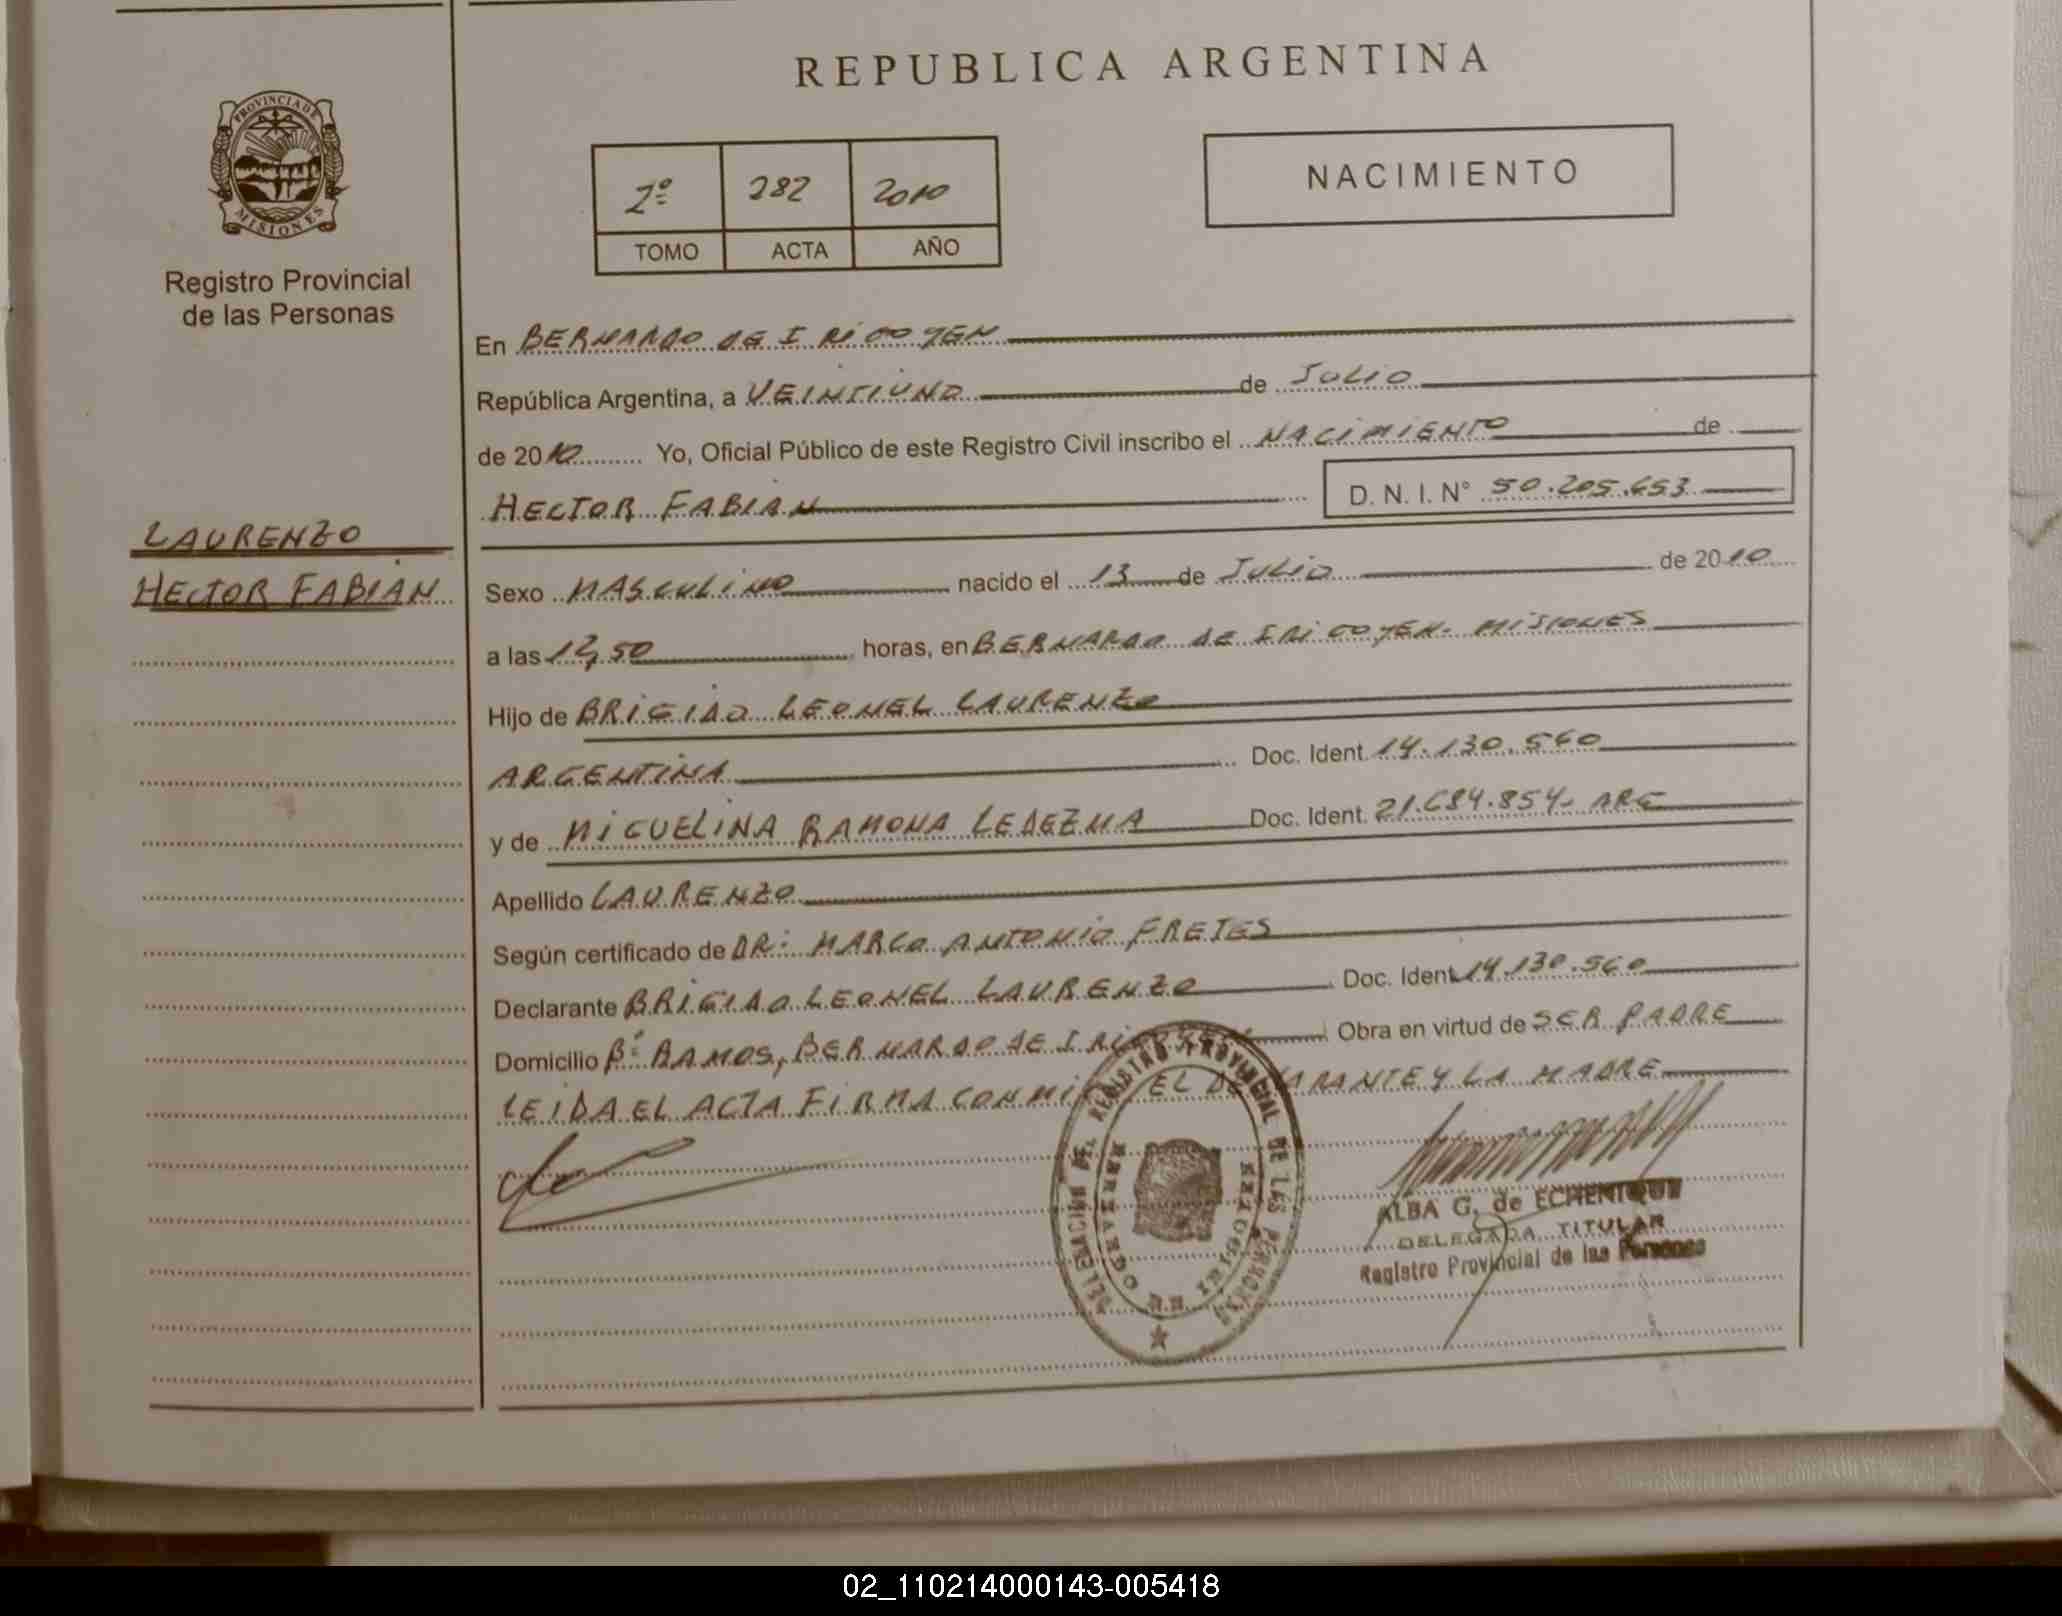 REPUBLICA ARGENTINA
PROVINCIA DE
MISIONES
Registro Provincial
de las Personas
2º 282 2010
TOMO ACTA AÑO
NACIMIENTO
En BERNARDO DE IRIGOYEN
República Argentina, a VEINTIUNO de JULIO
de 2010 Yo, Oficial Público de este Registro Civil inscribo el NACIMIENTO de
HECTOR FABIAN D. N. I. N° 50.205.653
LAURENZO
HECTOR FABIAN
Sexo MASCULINO nacido el 13 de JULIO de 2010
a las 12,50 horas, en BERNARDO DE IRIGOYEN- MISIONES
Hijo de BRIGIDO LEONEL LAURENZO
ARGENTINA Doc. Ident. 14.130.560
y de MIGUELINA RAMONA LEDEZMA Doc. Ident. 21.684.854- ARG
Apellido LAURENZO
Según certificado de DR: MARCO ANTONIO FRETES
Declarante BRIGIDO LEONEL LAURENZO Doc. Ident 14.130.560
Domicilio Bº RAMOS, BERNARDO DE IRIGOYEN Obra en virtud de SER PADRE
LEIDA EL ACTA FIRMA CON MIGO EL DECLARANTE Y LA MADRE
DELEGACION DEL REGISTRO PROVINCIAL DE LAS PERSONAS
BERNARDO DE IRIGOYEN
ALBA G. de ECHENIQUE
DELEGADA TITULAR
Registro Provincial de las Personas
02_110214000143-005418